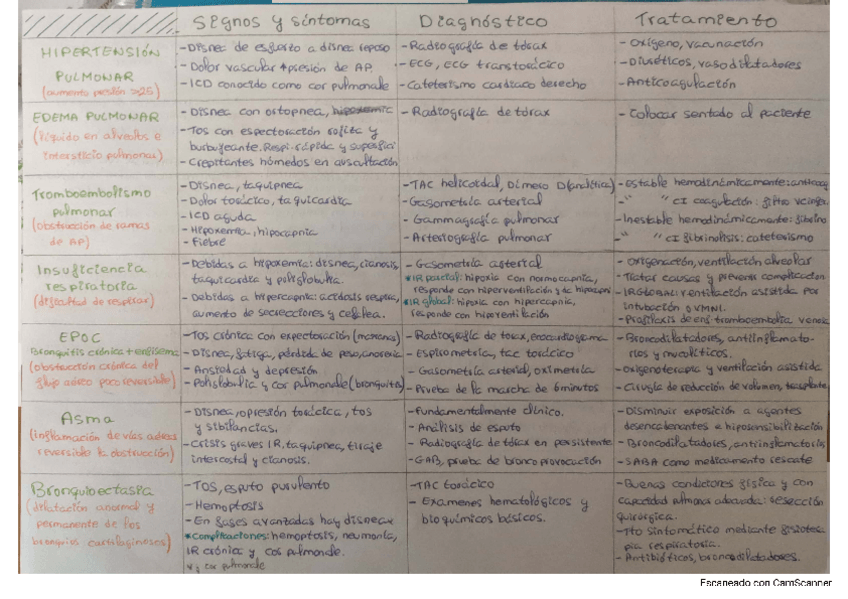 Signos y síntomas
Diagnóstico
Tratamiento
HIPERTENSIÓN
PULMONAR
(aumento presión >25)
- Disnea de esfuerzo a disnea reposo
- Dolor vascular ↑ presión de AP.
- ICD conocido como cor pulmonale
- Radiografía de tórax
- ECG, ECG transtorácico
- Cateterismo cardiaco derecho
- Oxígeno, vacunación
- Diuréticos, vasodilatadores
- Anticoagulación
EDEMA PULMONAR
(líquido en alveolos e
intersticio pulmonar)
- Disnea con ortopnea,
- Tos con espectoración rojiza y
burbujeante. Resp. rápida y superfici
- Crepitantes húmedos en auscultación
- Radiografía de tórax
- Colocar sentado al paciente
Tromboembolismo
pulmonar
(obstrucción de ramas
de AP)
- Disnea, taquipnea
- Dolor torácico, taquicardia
- ICD aguda
- Hipoxemia, hipocapnia
- Fiebre
- TAC helicoidal, Dímero D (analítica)
- Gasometría arterial
- Gammagrafía pulmonar
- Arteriografía pulmonar
- Estable hemodinámicamente: anticoag
- " " CI coagulación: filtro
- Inestable hemodinámicamente: fibrino
- " " CI fibrinolisis: cateterismo
Insuficiencia
respiratoria
(dificultad de respirar)
- Debidas a hipoxemia: disnea, cianosis,
taquicardia y poliglobulia.
- Debidas a hipercapnia: acidosis respira,
aumento de secrecciones y cefalea.
- Gasometría arterial
*IR parcial: hipoxia con normocapnia,
responde con hiperventilación y hipocapni
*IR global: hipoxia con hipercapnia,
responde con hipoventilación
- Origenación, ventilación alveolar
- Tratar causas y prevenir complicacion
- IRGLOBAL: ventilación asistida por
intubación o VMNI.
- Profilaxis de enf. tromboembolia venosa
EPOC
Bronquitis crónica + enfisema
(obstrucción crónica del
flujo aéreo poco reversible)
- Tos crónica con expectoración (mañanas)
- Disnea, fatiga, pérdida de peso, anorexia
- Ansiedad y depresión
- Poliglobulia y cor pulmonale (bronquitis)
- Radiografía de torax, encocardiograma
- Espirometría, tac torácico
- Gasometría arterial, oximetría
- Prueba de la marcha de 6 minutos
- Broncodilatadores, antiinflamato-
rios y mucolíticos.
- Oxigenoterapia y ventilación asistida
- Cirugía de reducción de volumen, trasplante
Asma
(inflamación de vías aéreas
reversible la obstrucción)
- Disnea, opresión torácica, tos
y sibilancias.
- Crisis graves IR, taquipnea, tiraje
intercostal y cianosis.
- Fundamentalmente clínico.
- Análisis de esputo
- Radiografía de tórax en persistente
- GAB, prueba de broncoprovocación
- Disminuir exposición a agentes
desencadenantes e hiposensibilización
- Broncodilatadores, antiinflamatorios
- SABA como medicamento rescate
Bronquioectasia
(dilatación anormal y
permanente de los
bronquios cartilaginosos)
- TOS, esputo purulento
- Hemoptosis
- En fases avanzadas hay disnea
*Complicaciones: hemoptosis, neumonía,
IR crónica y cor pulmonale.
y cor pulmonale
- TAC torácico
- Examenes hematológicos y
bioquímicos básicos.
- Buenas condiciones física y con
capacidad pulmonar adecuada: resección
quirúrgica.
- Tto sintomático mediante fisiotera
pia respiratoria.
- Antibióticos, broncodilatadores.
Escaneado con CamScanner